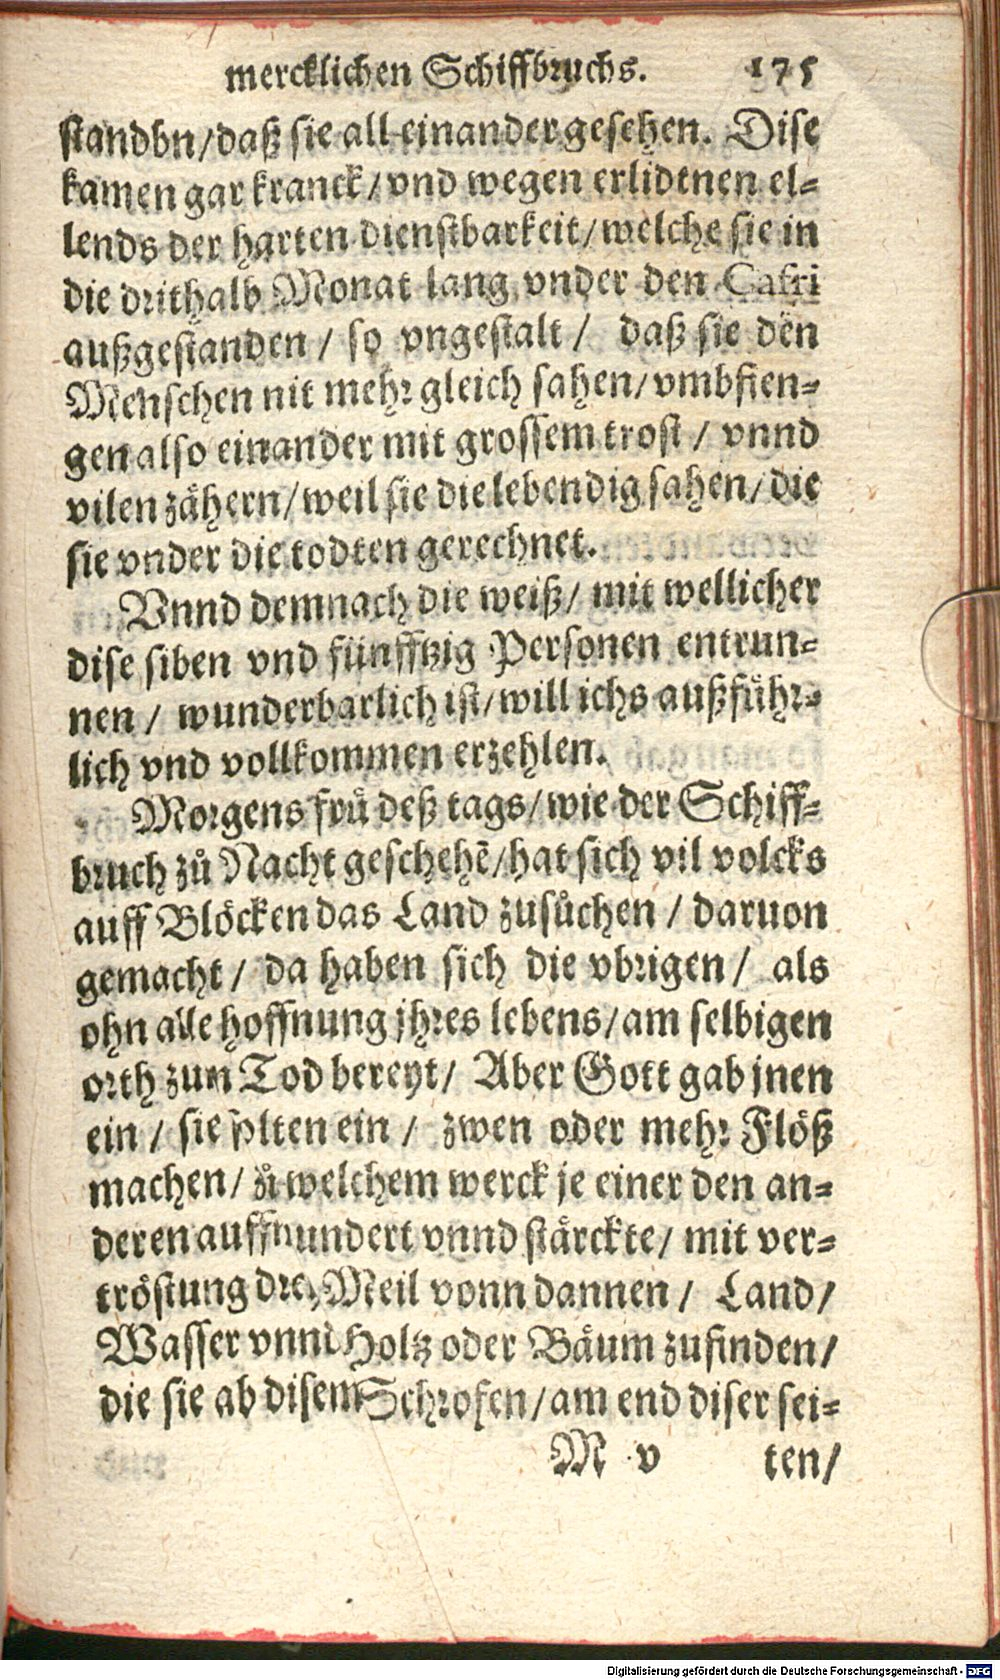 mercklichen Schiffbruchs. 175
standbn/daß sie all einander gesehen. Dise
kamen gar kranck/vnd wegen erlidtnen el-
lends der harten dienstbarkeit/welche sie in
die drithalb Monat lang vnder den Cafri
außgestanden/ so vngestalt/ daß sie den
Menschen nit mehr gleich sahen/vmbfien-
gen also einander mit grossem trost/ vnnd
vilen zähern/weil sie die lebendig sahen/die
sie vnder die todten gerechnet.
Vnnd demnach die weiß/ mit wellicher
dise siben vnd fünfftzig Personen entrun-
nen/ wunderbarlich ist/will ichs außführ-
lich vnd vollkommen erzehlen.
Morgens frü deß tags/wie der Schiff-
bruch zů Nacht geschehē/hat sich vil volcks
auff Blöcken das Land zusůchen/ daruon
gemacht/ da haben sich die vbrigen/ als
ohn alle hoffnung jhres lebens/am selbigen
orth zum Tod bereyt/ Aber Gott gab jnen
ein/ sie solten ein/ zwen oder mehr Flöß
machen/ zů welchem werck je einer den an-
deren auffmundert vnnd stärckte/ mit ver-
tröstung drey Meil vonn dannen/ Land/
Wasser vnnd Holtz oder Bäum zufinden/
die sie ab disem Schrofen/am end diser sei-
M v ten/
Digitalisierung gefördert durch die Deutsche Forschungsgemeinschaft - DFG